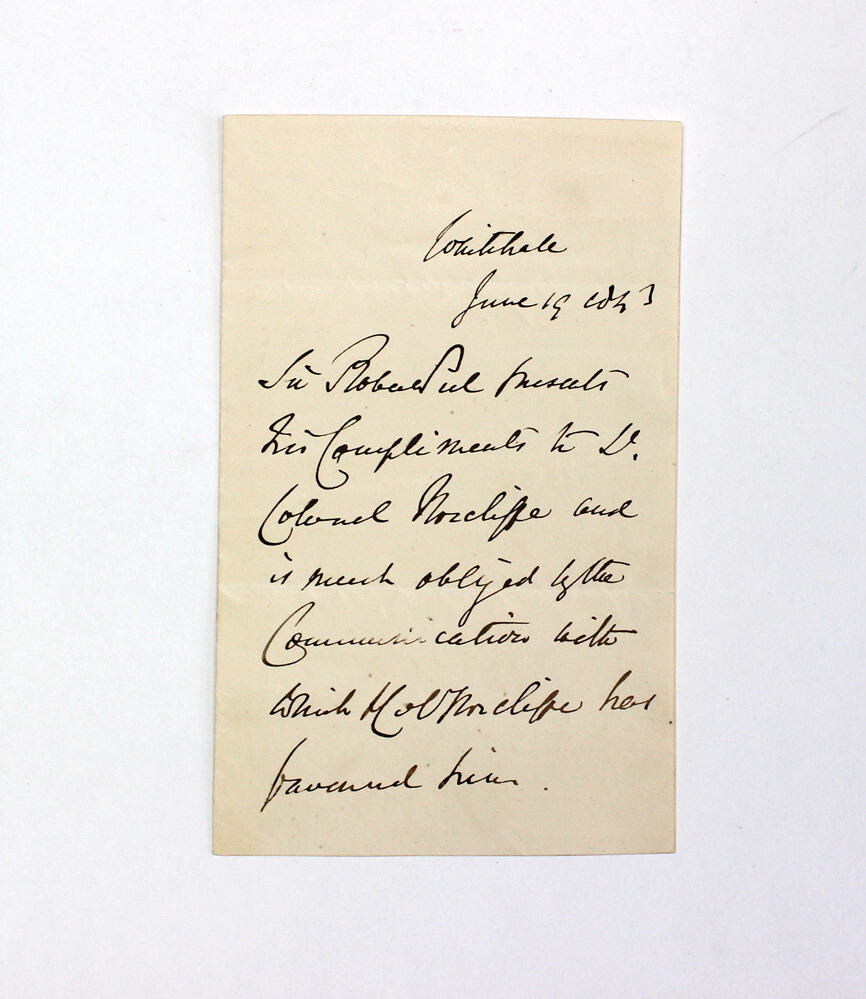 Whitehall
June 19 1843
Sir Robert Peel presents
his Compliments to Lt.
Colonel Norcliffe and
is much obliged by the
Communication with
which Col Norcliffe has
favoured him.